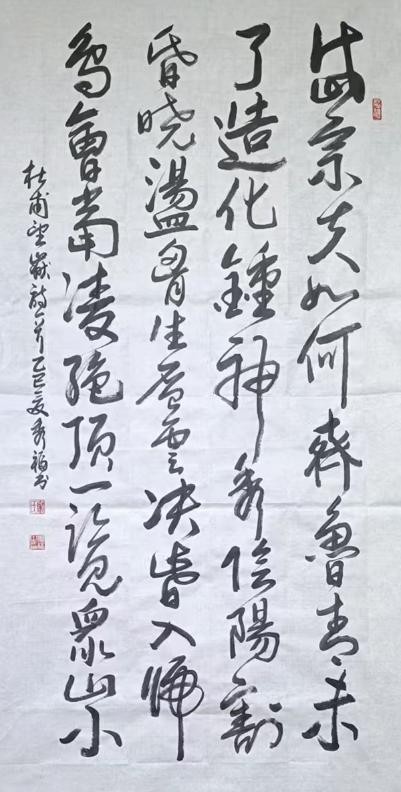 岱宗夫如何齊魯青未
了造化鍾神秀陰陽割
昏曉盪胷生層雲决眥入歸
鳥會當凌絶頂一覽衆山小
杜甫望嶽詩一首乙巳夏秀福书